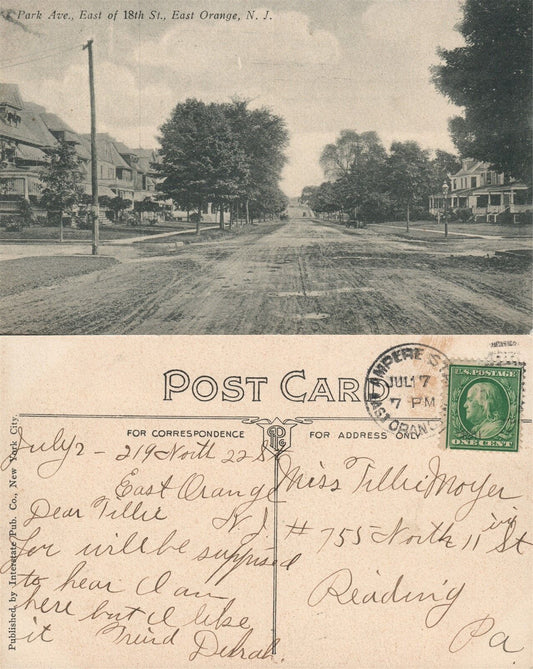 Park Ave., East of 18th St., East Orange, N. J.
POST CARD
AMPERE STA.
JUL 7
7 PM
EAST ORANGE
U.S. POSTAGE
ONE CENT
FOR CORRESPONDENCE
FOR ADDRESS ONLY
Published by Interstate Pub. Co., New York City.
July 2 - 219 North 22 S
East Orange
N J.
Dear Tillie
you will be suppised
to hear I am
here but I like
it Freind
Miss Tillie Moyer
# 755 North 11 St
Reading
Pa